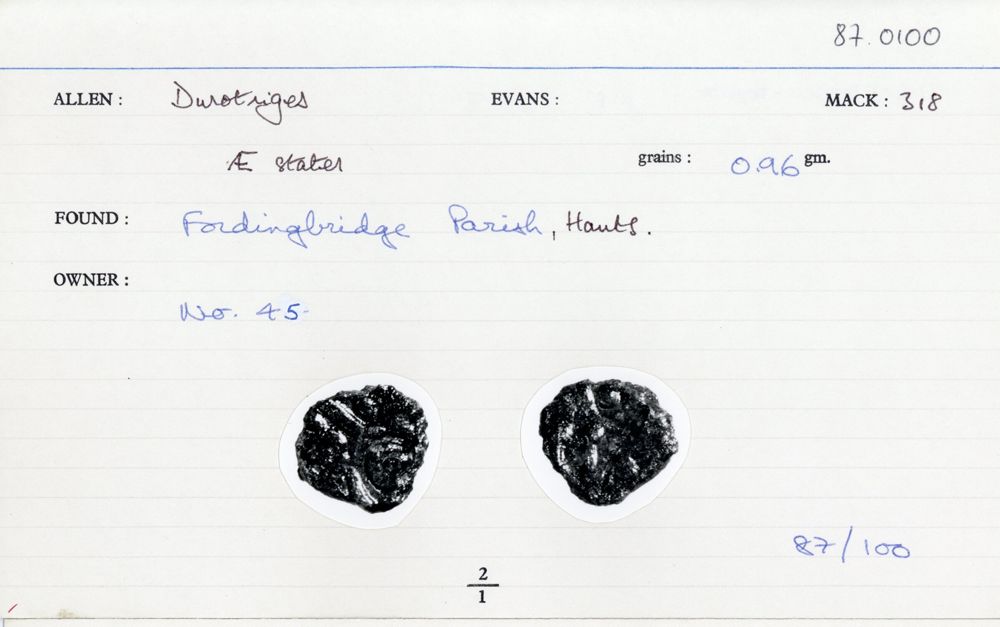 87.0100
ALLEN : Durotriges EVANS : MACK : 318
Æ stater grains : 0.96 gm.
FOUND : Fordingbridge Parish, Hants.
OWNER :
No. 45
87/100
2
1